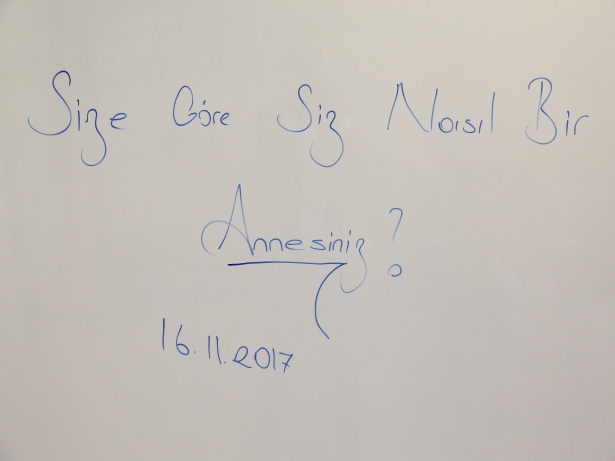 Size Göre Siz Nasıl Bir
Annesiniz?
16.11.2017